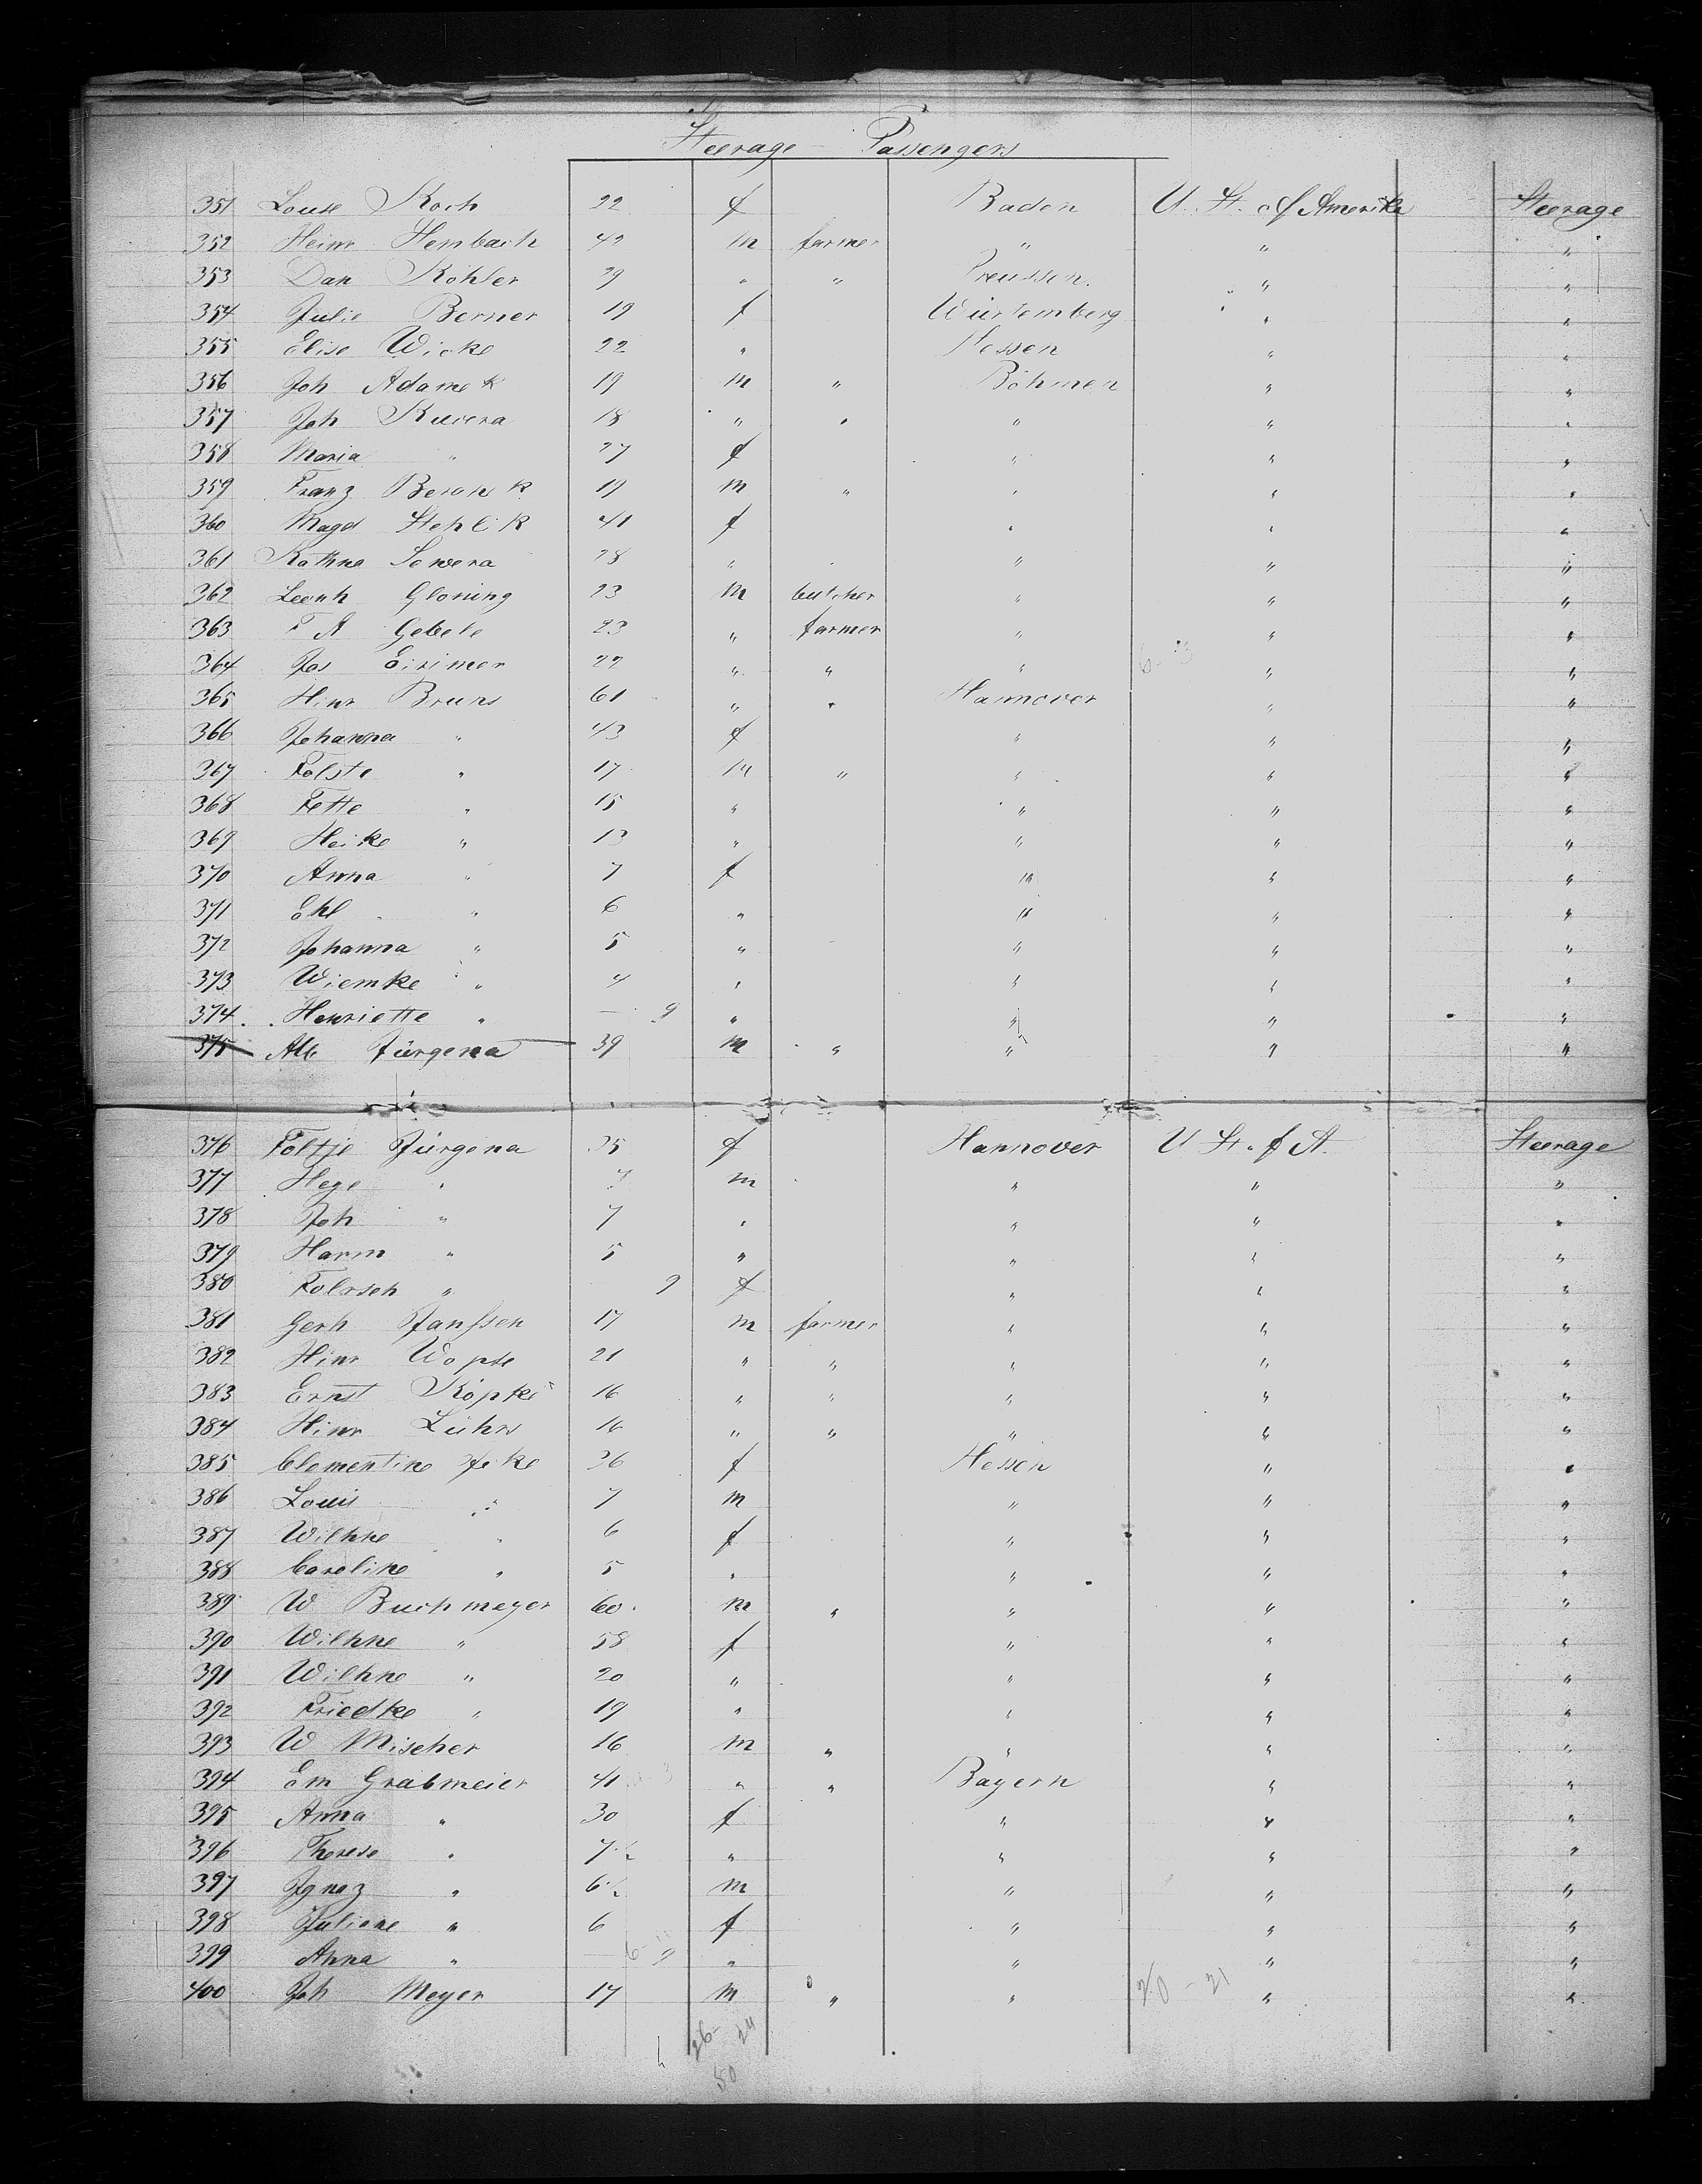 Steerage Passengers
351 Louse Koch 22 f Baden U. St. of Amerika Steerage
352 Heinr Hembach 42 m farmer " " "
353 Dan Köhler 29 " " Preussen. " "
354 Julie Berner 19 f Würtemberg " "
355 Elise Wicke 22 " Hessen " "
356 Joh Adamek 19 m " Böhmen " "
357 Joh Kucera 18 " " " " "
358 Maria " 27 f " " "
359 Franz 19 m " " " "
360 Magd Stehlik 41 f " " "
361 Kathna Sowera 28 " " " "
362 Leonh Gloning 23 m butcher " " "
363 F A Gebele 23 " farmer " " "
364 Jos 22 " " " " "
365 Hinr Bruns 61 " " Hannover " "
366 Johanna " 43 f " " "
367 Folste " 17 m " " " "
368 Fette " 15 " " " "
369 Heike " 13 " " " "
370 Anna " 7 f " " "
371 Ehl " 6 " " " "
372 Johanna " 5 " " " "
373 Wiemke " 4 " " " "
374. Henriette " — 9 " " " "
375 Alb Jürgena 39 m " " " "
376 Foltje Jürgena 35 f Hannover U St. of A. Steerage
377 Hege " m " " "
378 Joh " 7 " " " "
379 Harm " 5 " " " "
380 " 9 f " " "
381 Gerh Janssen 17 m farmer " " "
382 Hinr Wopse 21 " " " " "
383 Ernst Köpke 16 " " " " "
384 Hinr Lührs 16 " " " " "
385 Clementine 36 f Hessen " "
386 Louis " 7 m " " "
387 Wilhne " 6 f " " "
388 Caroline " 5 " " " "
389 W Buchmeyer 60 m " " " "
390 Wilhne " 58 f " " "
391 Wilhne " 20 " " " "
392 Friedke " 19 " " " "
393 W Mischer 16 m " " " "
394 Em Grabmeier 41 " " Bayern " "
395 Anna " 30 f " " "
396 Therese " 7½ " " " "
397 Ignaz " 6½ m " " "
398 Juliane " 6 f " " "
399 Anna " — 9 " " " "
400 Joh Meyer 17 m " " 20 - 21 " "
26- 24
50